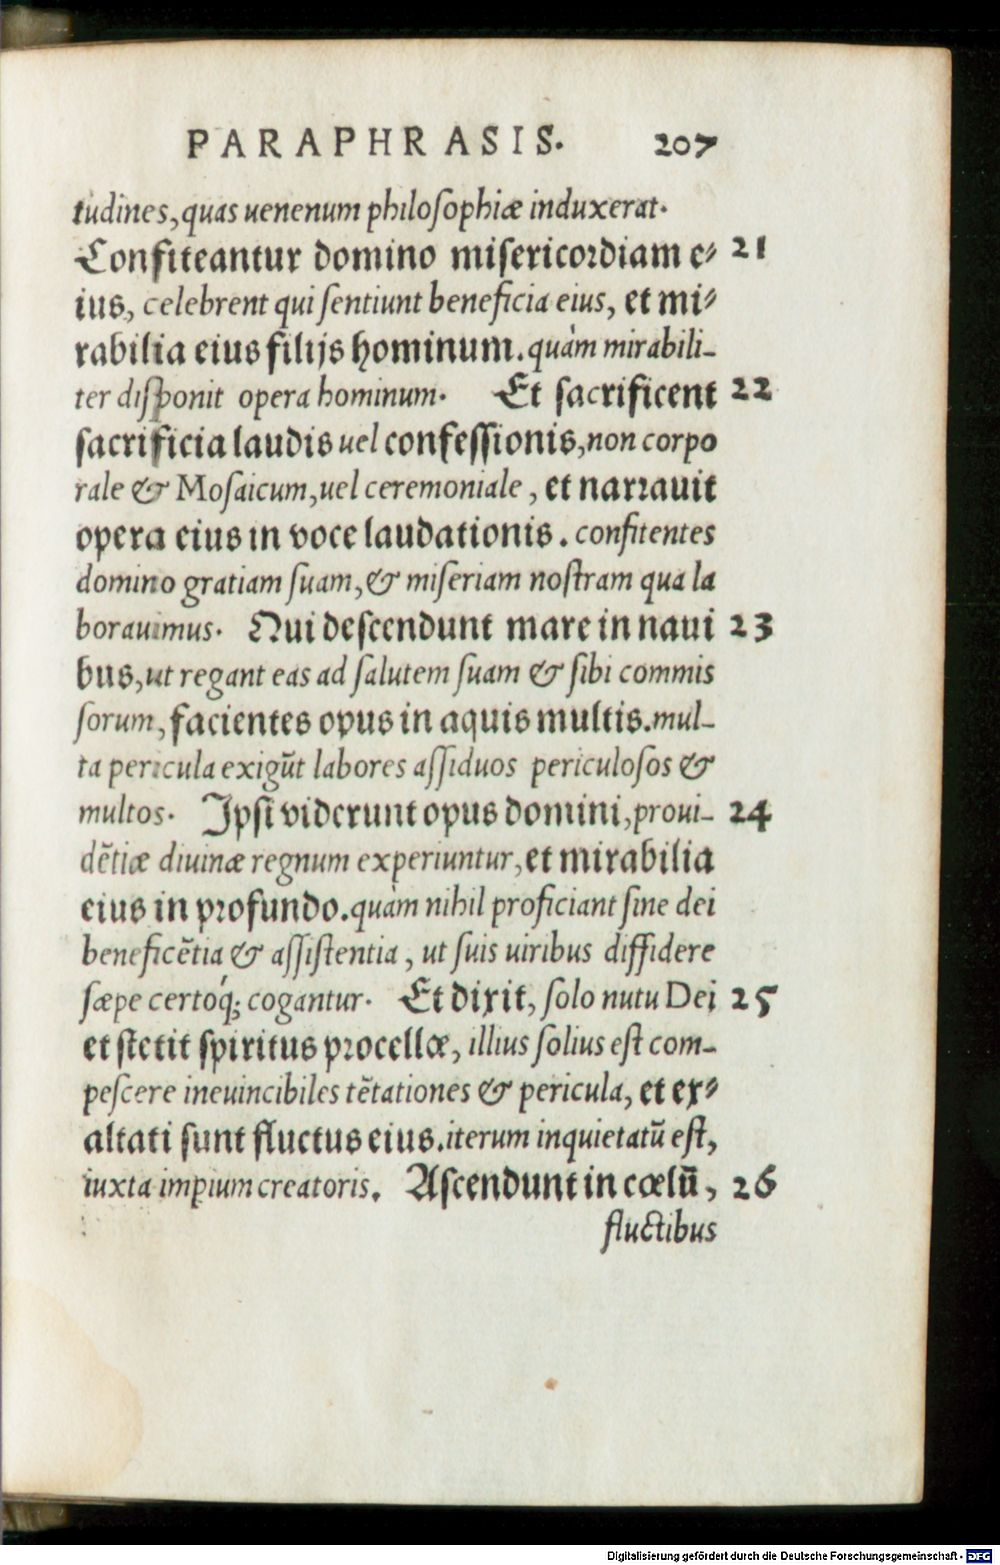 PARAPHRASIS. 207
tudines, quas uenenum philosophiæ induxerat.
Confiteantur domino misericordiam e⸗ 21
ius, celebrent qui sentiunt beneficia eius, et mi⸗
rabilia eius filijs hominum. quàm mirabili-
ter disponit opera hominum. Et sacrificent 22
sacrificia laudis uel confessionis, non corpo
rale & Mosaicum, uel ceremoniale, et narrauit
opera eius in voce laudationis. confitentes
domino gratiam suam, & miseriam nostram qua la
borauimus. Qui descendunt mare in naui 23
bus, ut regant eas ad salutem suam & sibi commis
sorum, facientes opus in aquis multis. mul-
ta pericula exigūt labores assiduos periculosos &
multos. Ipsi viderunt opus domini, proui- 24
dētiæ diuinæ regnum experiuntur, et mirabilia
eius in profundo. quàm nihil proficiant sine dei
beneficētia & assistentia, ut suis uiribus diffidere
sæpe certoq́; cogantur. Et dixit, solo nutu Dei 25
et stetit spiritus procellæ, illius solius est com-
pescere ineuincibiles tētationes & pericula, et ex⸗
altati sunt fluctus eius. iterum inquietatū est,
iuxta impium creatoris. Ascendunt in cœlū, 26
fluctibus
Digitalisierung gefördert durch die Deutsche Forschungsgemeinschaft - DFG